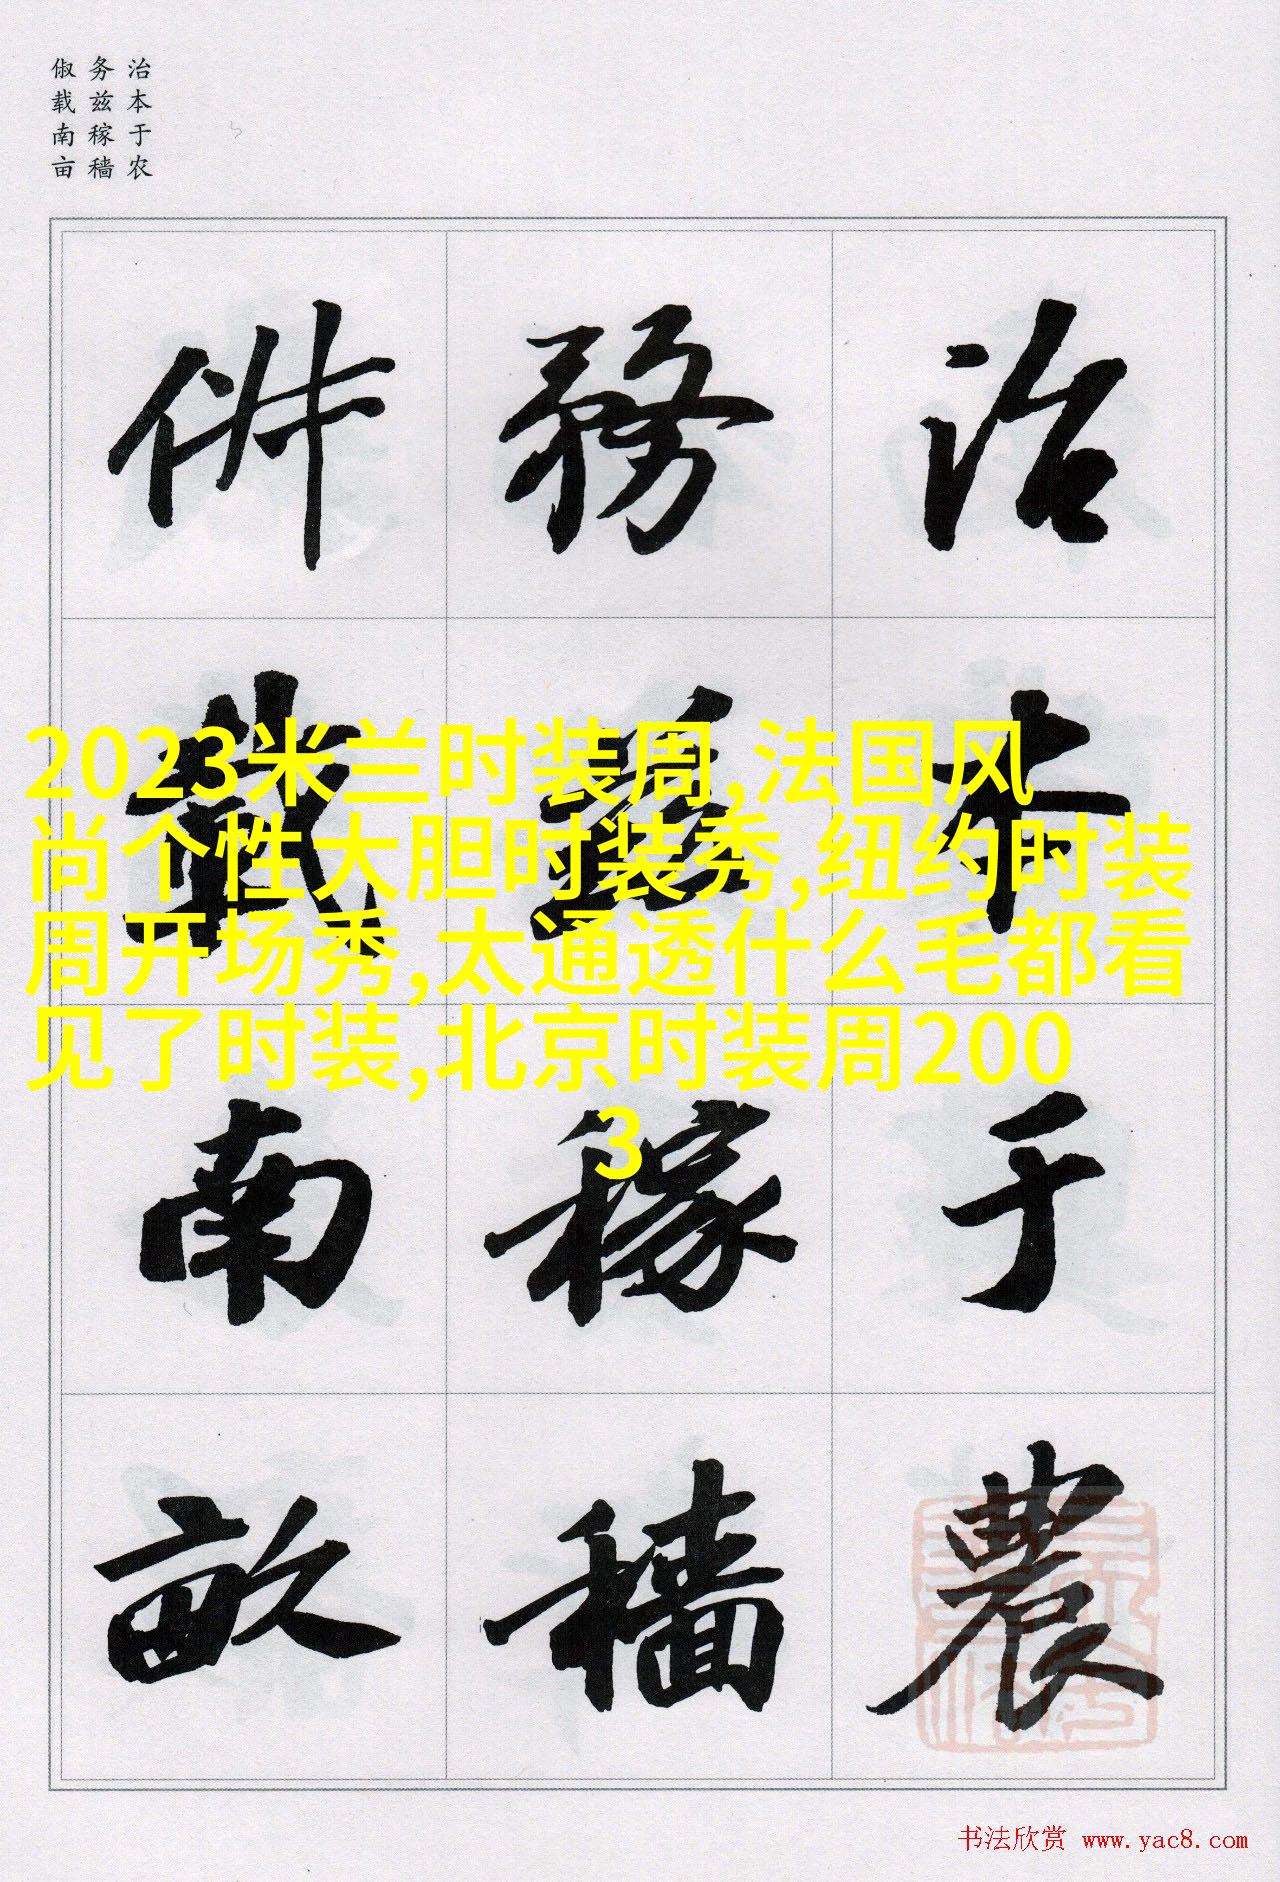 治本于农
务兹稼穑
俶载南亩
治本于農
務茲稼穡
俶載南畝
2023米兰时装周,法国风
尚个性大胆时装秀,纽约时装
周开场秀,太通透什么毛都看
见了时装,北京时装周200
3
书法欣赏 www.yac8.com